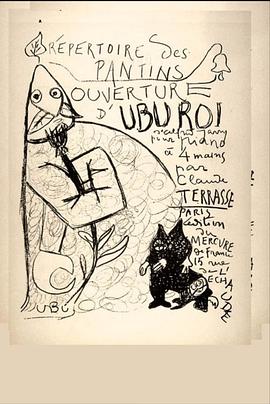 RÉPERTOIRE DES
PANTINS
OUVERTURE
D' UBU ROI
d'alfred Jarry
pour piano
à 4 mains
par
Claude
TERRASSE
PARIS
édition
du
MERCURE
de France
15 rue
de L'
ECHAUDÉ
UBU